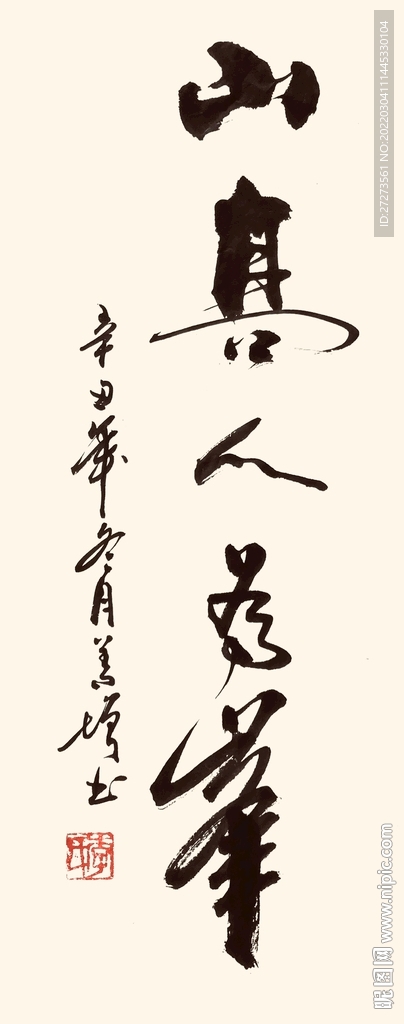 山髙人為峯
辛丑年冬月善書
ID:27273561 NO:20220304111445330104
昵图网 www.nipic.com